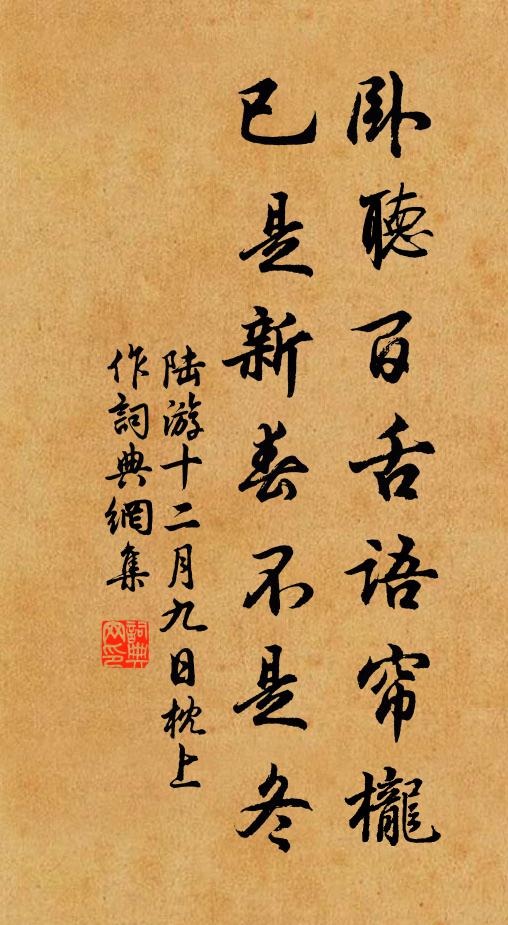 卧聽百舌語帘櫳
已是新春不是冬
陆游十二月九日枕上
作詞典網集
詞典
网印